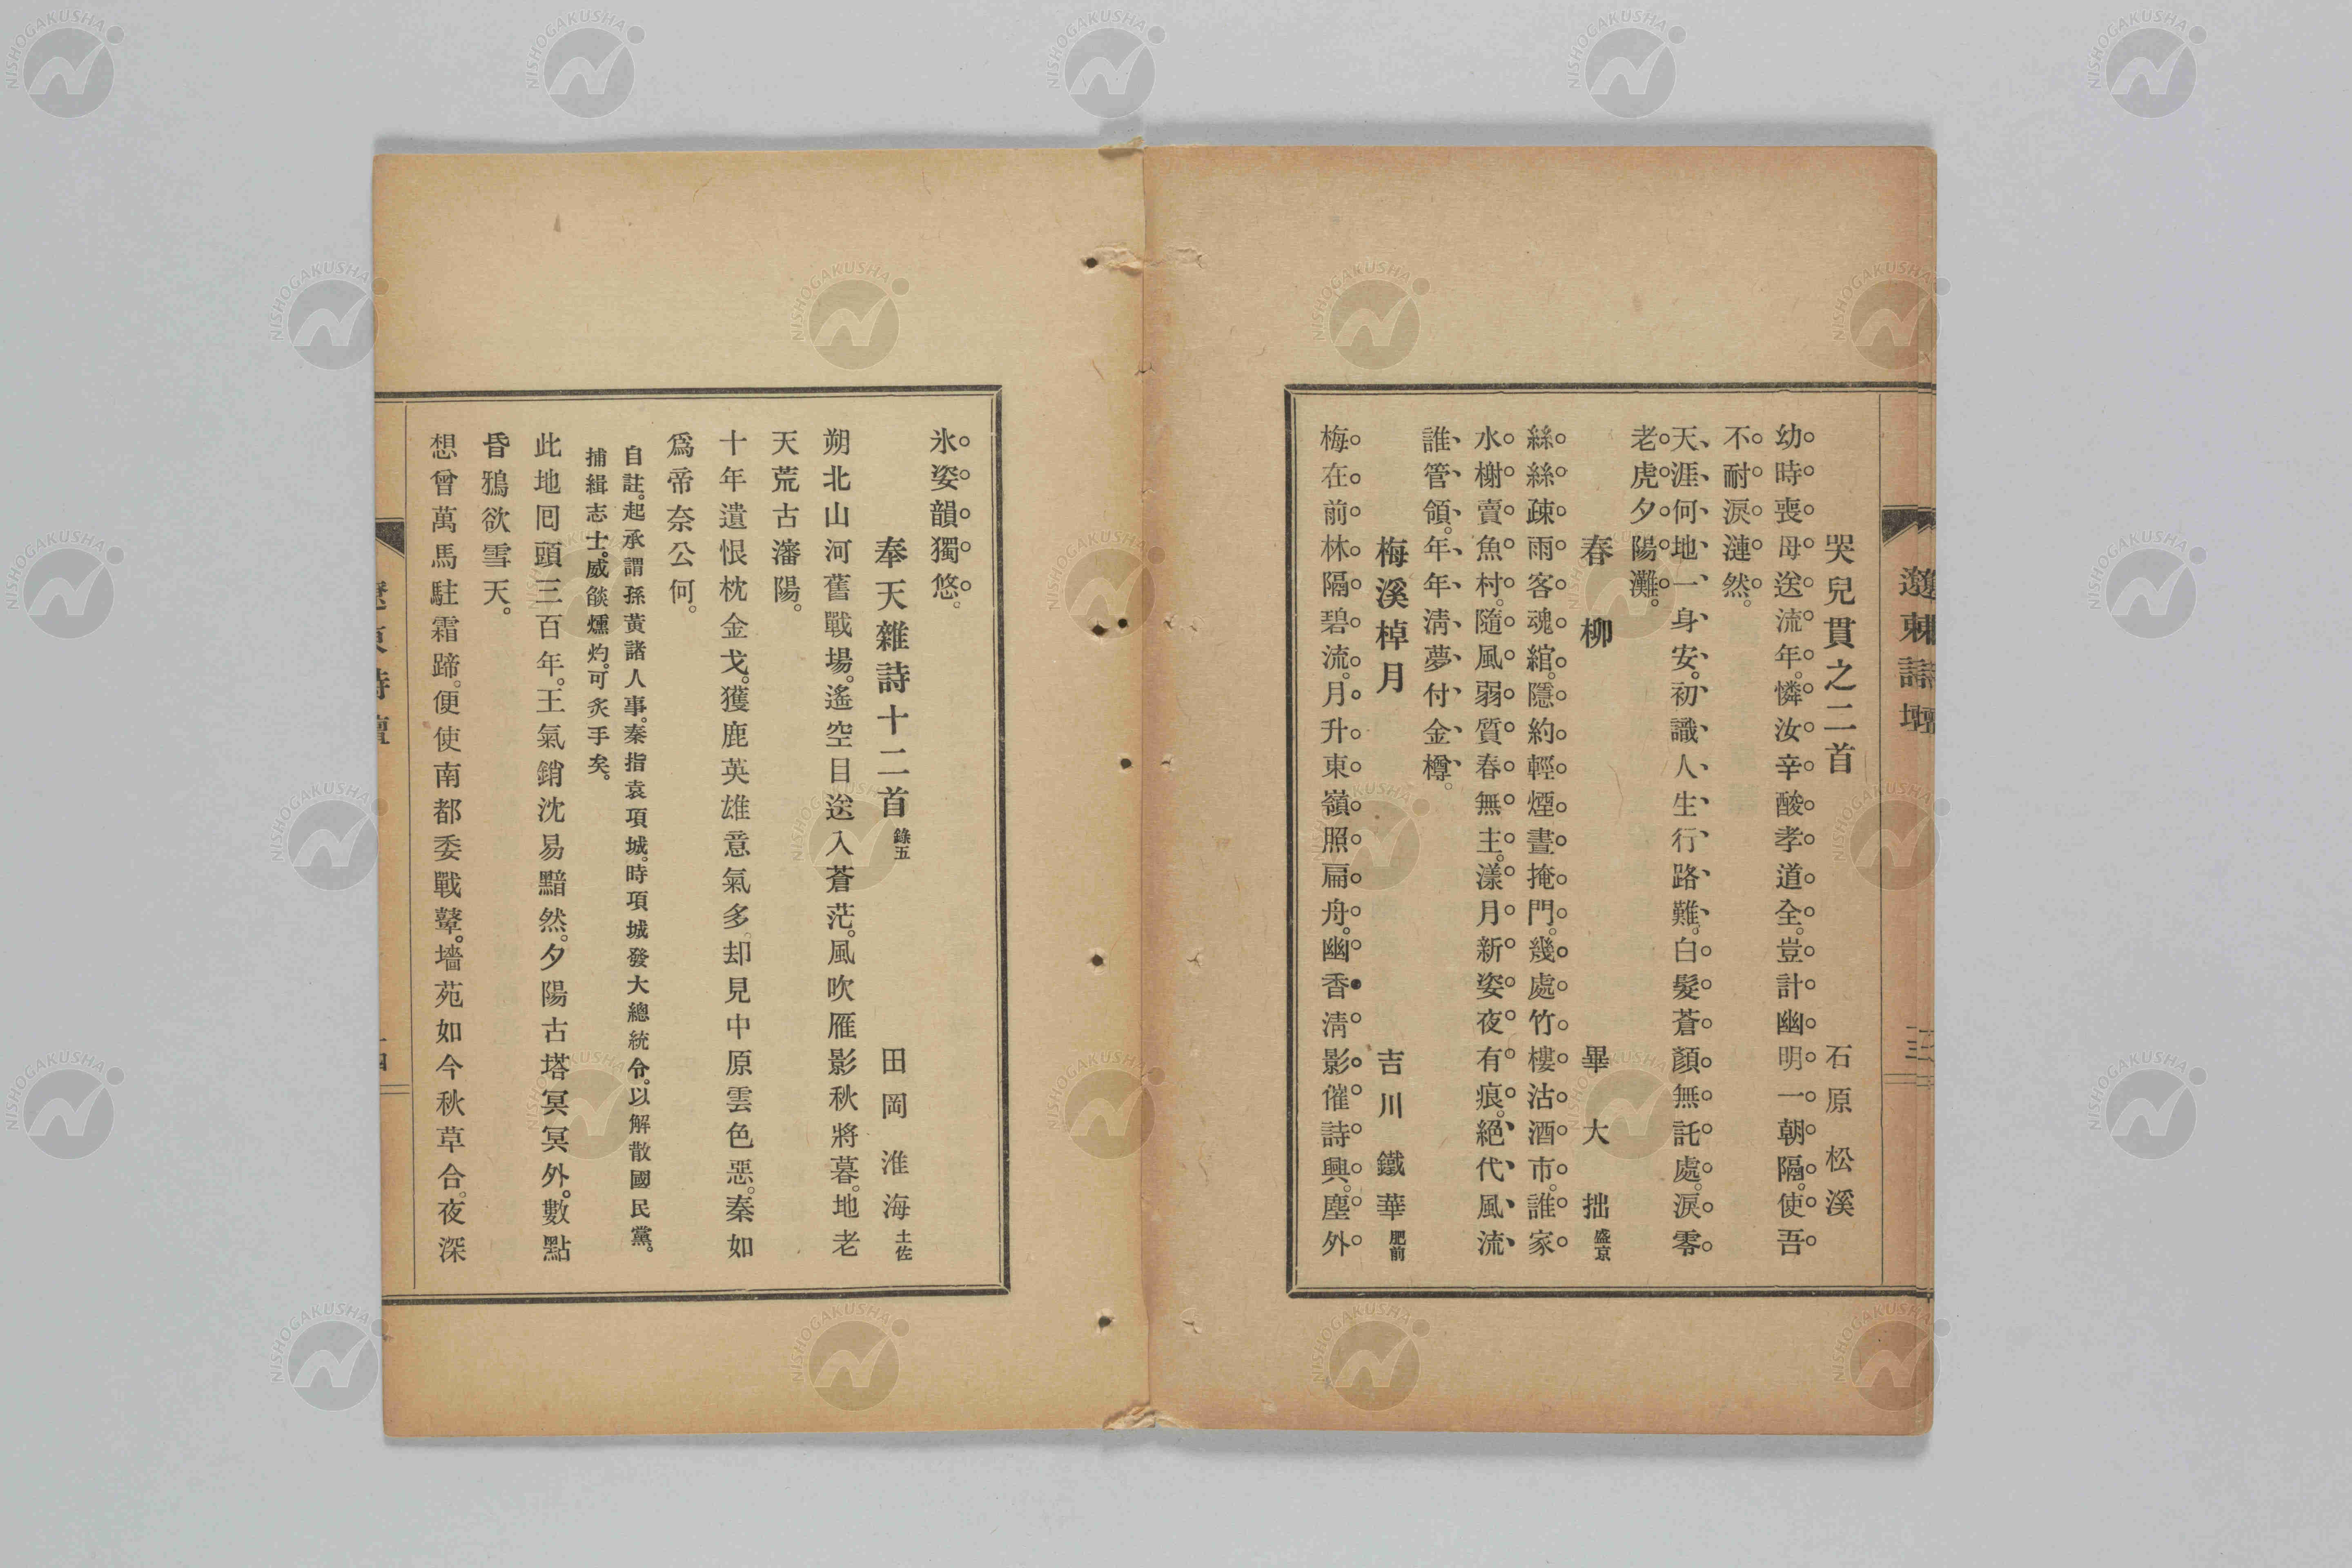 遼東詩壇
三
哭兒貫之二首 石原松溪
幼時喪母送流年。憐汝辛酸孝道全。豈計幽明一朝隔。使吾
不耐淚漣然。
天涯何地一身安。初識人生行路難。白髮蒼顏無託處。淚零
老虎夕陽灘。
春柳 畢大拙 盛京
絲絲疎雨客魂綰。隱約輕煙晝掩門。幾處竹樓沽酒市。誰家
水榭賣魚村。隨風弱質春無主。漾月新姿夜有痕。絕代風流
誰管領。年年淸夢付金樽。
梅溪棹月 吉川鐵華 肥前
梅在前林隔碧流。月升東嶺照扁舟。幽香淸影催詩興。塵外
氷姿韻獨悠。
奉天雜詩十二首 錄五 田岡淮海 土佐
朔北山河舊戰場。遙空日送入蒼茫。風吹雁影秋將暮。地老
天荒古瀋陽。
十年遺恨枕金戈。獲鹿英雄意氣多。却見中原雲色惡。秦如
爲帝奈公何。
自註。起承謂孫黃諸人事。秦指袁項城。時項城發大總統令。以解散國民黨。
捕緝志士。威燄燻灼。可炙手矣。
此地囘頭三百年。王氣銷沈易黯然。夕陽古塔冥冥外。數點
昏鴉欲雪天。
想曾萬馬駐霜蹄。便使南都委戰鼙。墻苑如今秋草合。夜深
遼東詩壇
四